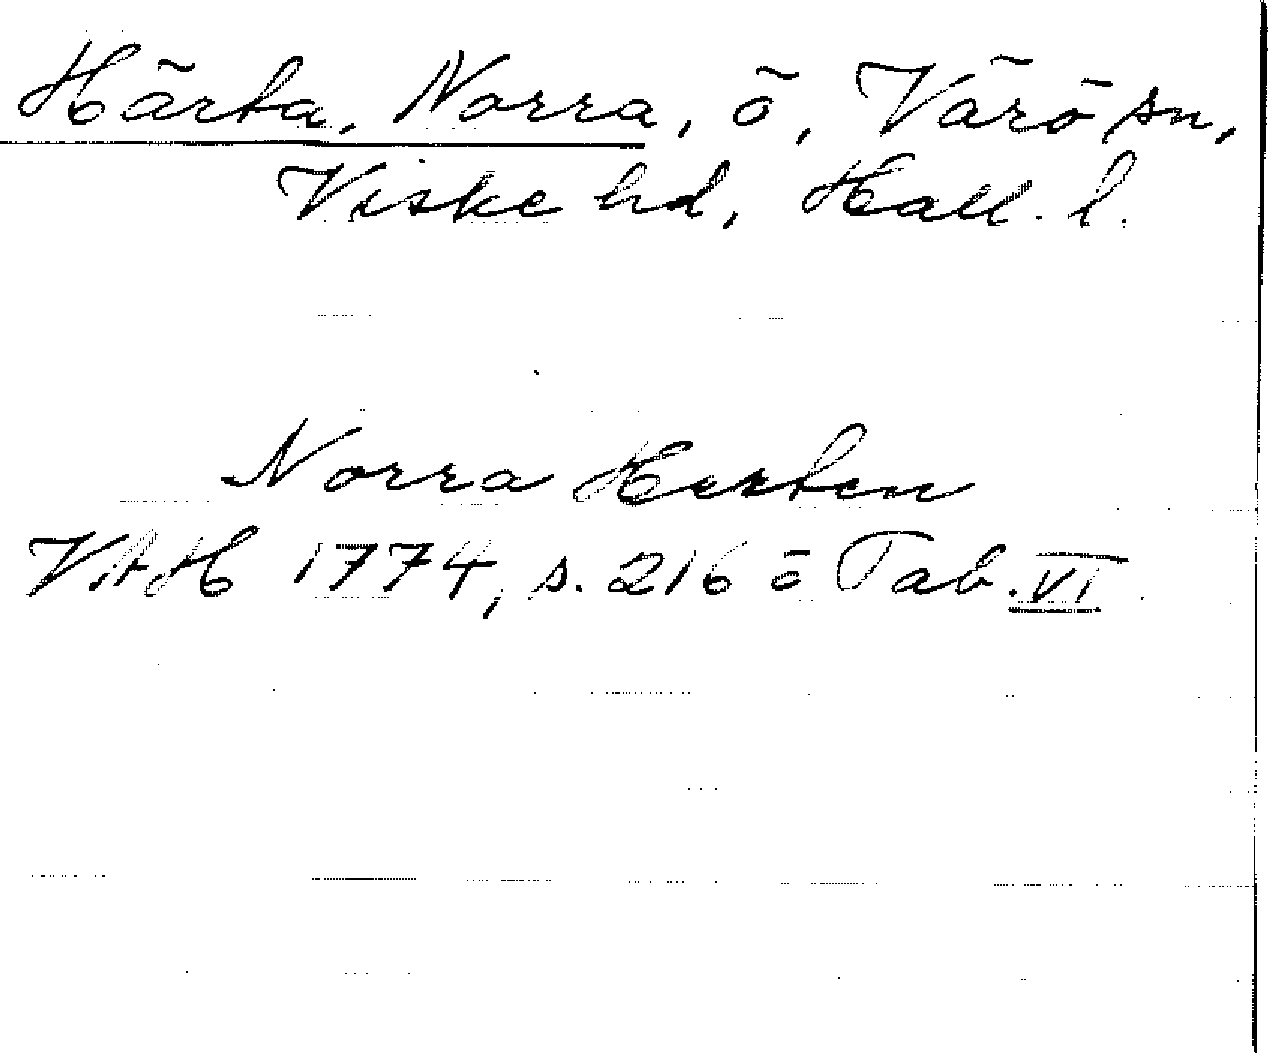 Härta, Norra, ö, Värö sn,
Viske hd, Hall. l.
Norra Herten
VAH 1774, s. 216 ö Tab. VI